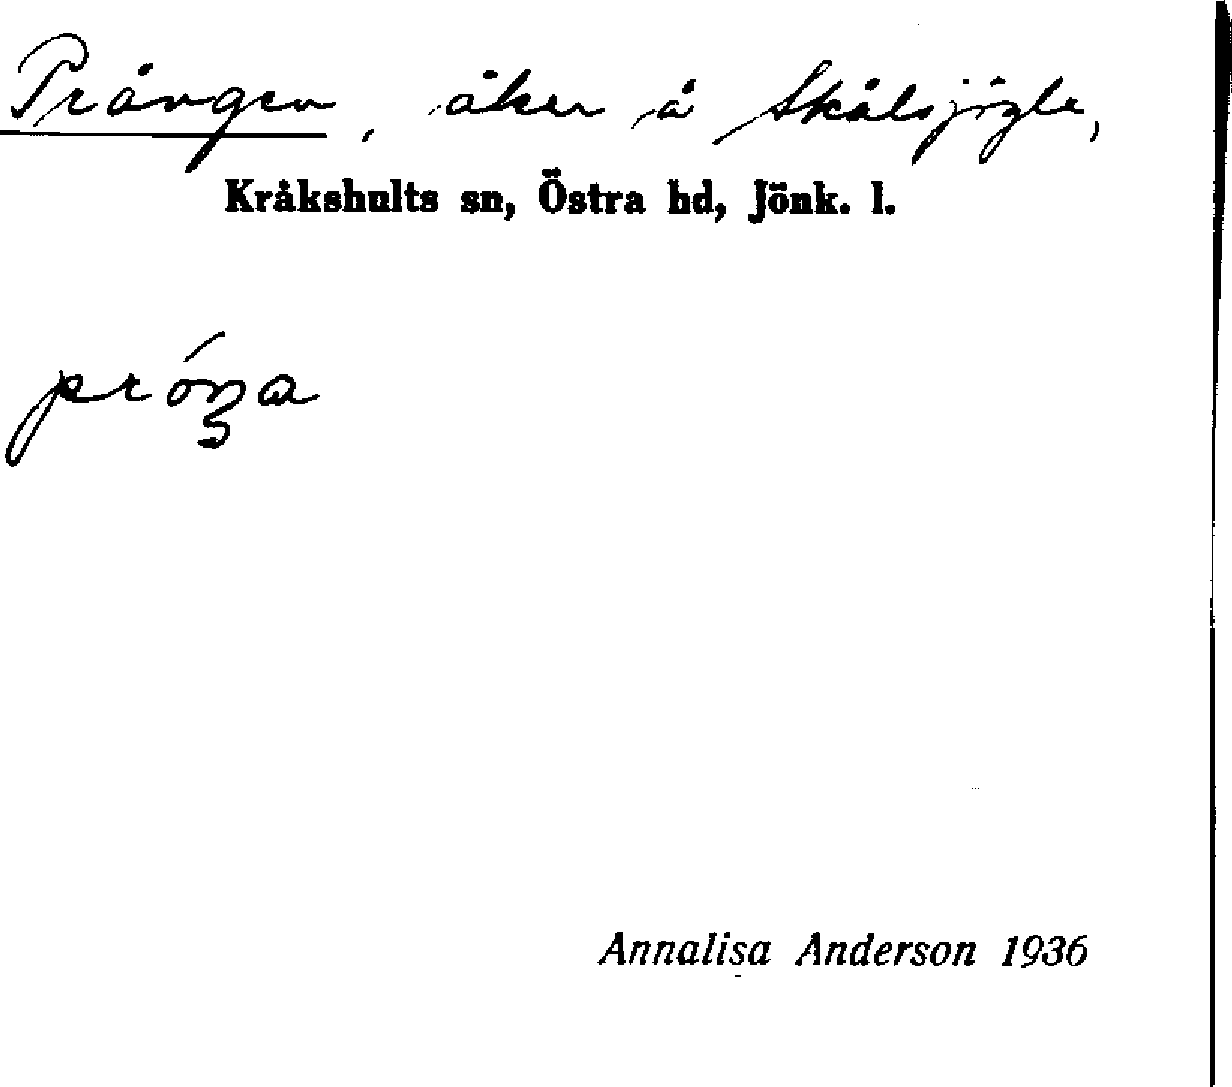 Prången, åker å Skålsjögle,
Kråkshults sn, Östra hd, Jönk. l.
próŋa
Annalisa Anderson 1936